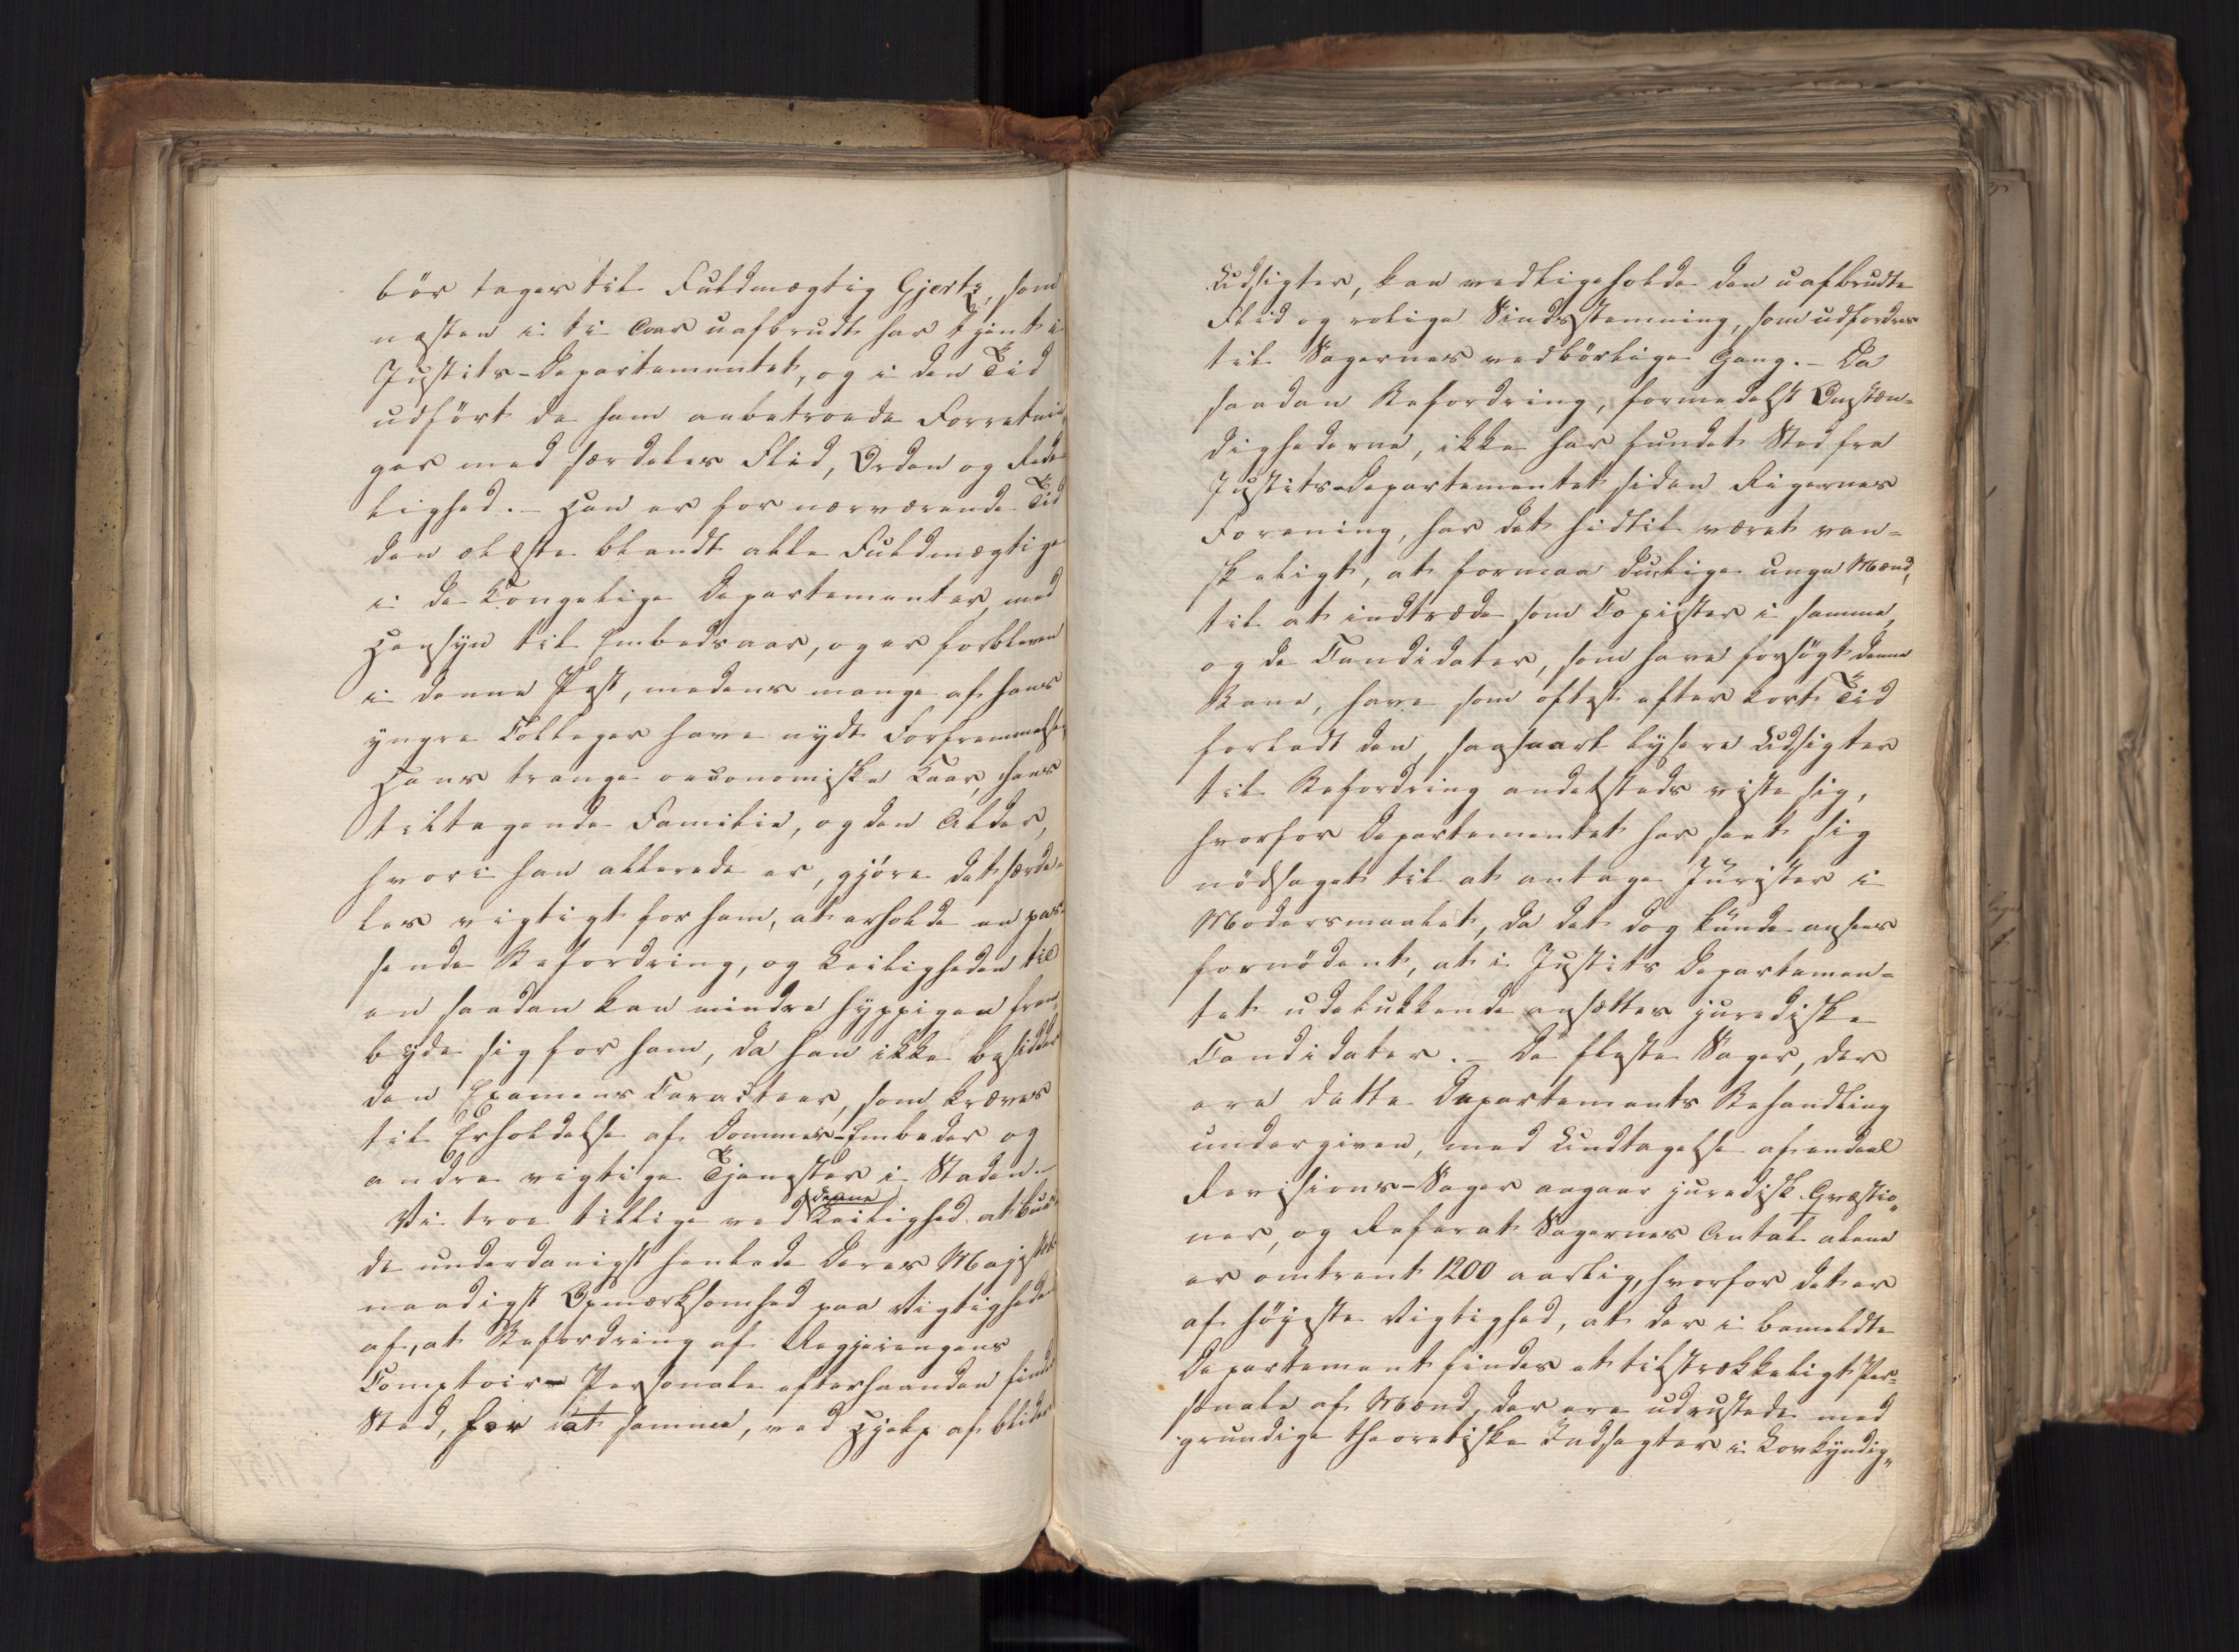 bör tages til Fuldmægtig Gjertz, som
næsten i ti Aar uafbrudt har tjent i
Justits-Departementet, og i den Tid
udført de ham anbetroede Forretnin„
ger med særdeles Flid, Orden og Rede„
lighed. – Han er for nærværende Tid
den ælste blandt alle Fuldmægtige
i de Kongelige Departementer, med
Hensyn til Embedsaar, og er forbleven
i denne Post, medens mange af hans
yngre Colleger have nydt Forfremmelse,
Hans trange oeconomiske Kaar, hans
tiltagende Familie, og den Alder,
hvori han allerede er, gjøre det særde„
les vigtigt for ham, at erholde en pas„
sende Befordring, og Leiligheden til
en saadan kan mindre hyppigen frem„
byde sig for ham, da han ikke besidder
den Examens Caracteer, som kræves
til Erholdelse af Dommer-Embeder og
andre vigtige Tjenester i Staden. –
denne
Vi troe tillige ved Leilighed at bur„
de underdanigst henlede Deres Majestæts
naadigst Opmærksomhed paa Vigtigheden
af, at Befordring af Regjeringens
Comptoir-Personale efterhaanden finder
Sted, for at samme, ved Hjelp af blidere
Udsigter, kan vedligeholde den uafbrudte
Flid og rolige Sindsstemning, som udfordres
til Sagernes vedbörlige Gang. – Da
saadan Befordring, formedelst Omstæn=
dighederne, ikke har fundet Sted fra
Justits-Departementet siden Rigernes
Forening, har det hidtil været van=
skeligt, at formaa duelige unge Mænd,
til at indtræde som Copister i samme,
og de Candidater, som have forsögt denne
Bane, have som oftest efter kort Tid
forladt den, saasnart lysere Udsigter
til Befordring andetsteds viste sig,
hvorfor Departementet har seet sig
nödsaget til at antage Jurister i
Modersmaalet, da det dog kunde ansees
fornödent, at i Justits Departemen=
tet udelukkende ansættes juridiske
Candidater. – De fleste Sager, der
ere dette Departements Behandling
undergiven, med Undtagelse af endeel
Revisions-Sager angaar juridisk Qvæstio„
ner, og Referat Sagernes Antal alene
er omtrent 1200 aarlig, hvorfor det er
af höjeste Vigtighed, at der i bemeldte
Departement findes et tilstrækkeligt Per=
sonale af Mænd, der ere udrustede med
grundige theoretiske Indsigter i Lovkyndig„